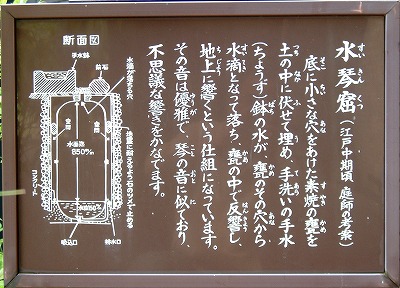 水琴窟(江戸中期頃 庭師の考案)
底に小さな穴をあけた素焼の甕を
土の中に伏せて埋め、手洗いの手水
(ちょうず)鉢の水が、甕のその穴から
水滴となって落ち、甕の中で反響し、
地上に響くという仕組になっています。
その音は優雅で、琴の音に似ており、
不思議な響きをかなでます。
断面図
手水鉢
前石
水滴が落ちる穴
空間
空間
水面巾
コンクリート
吸込口
排水口